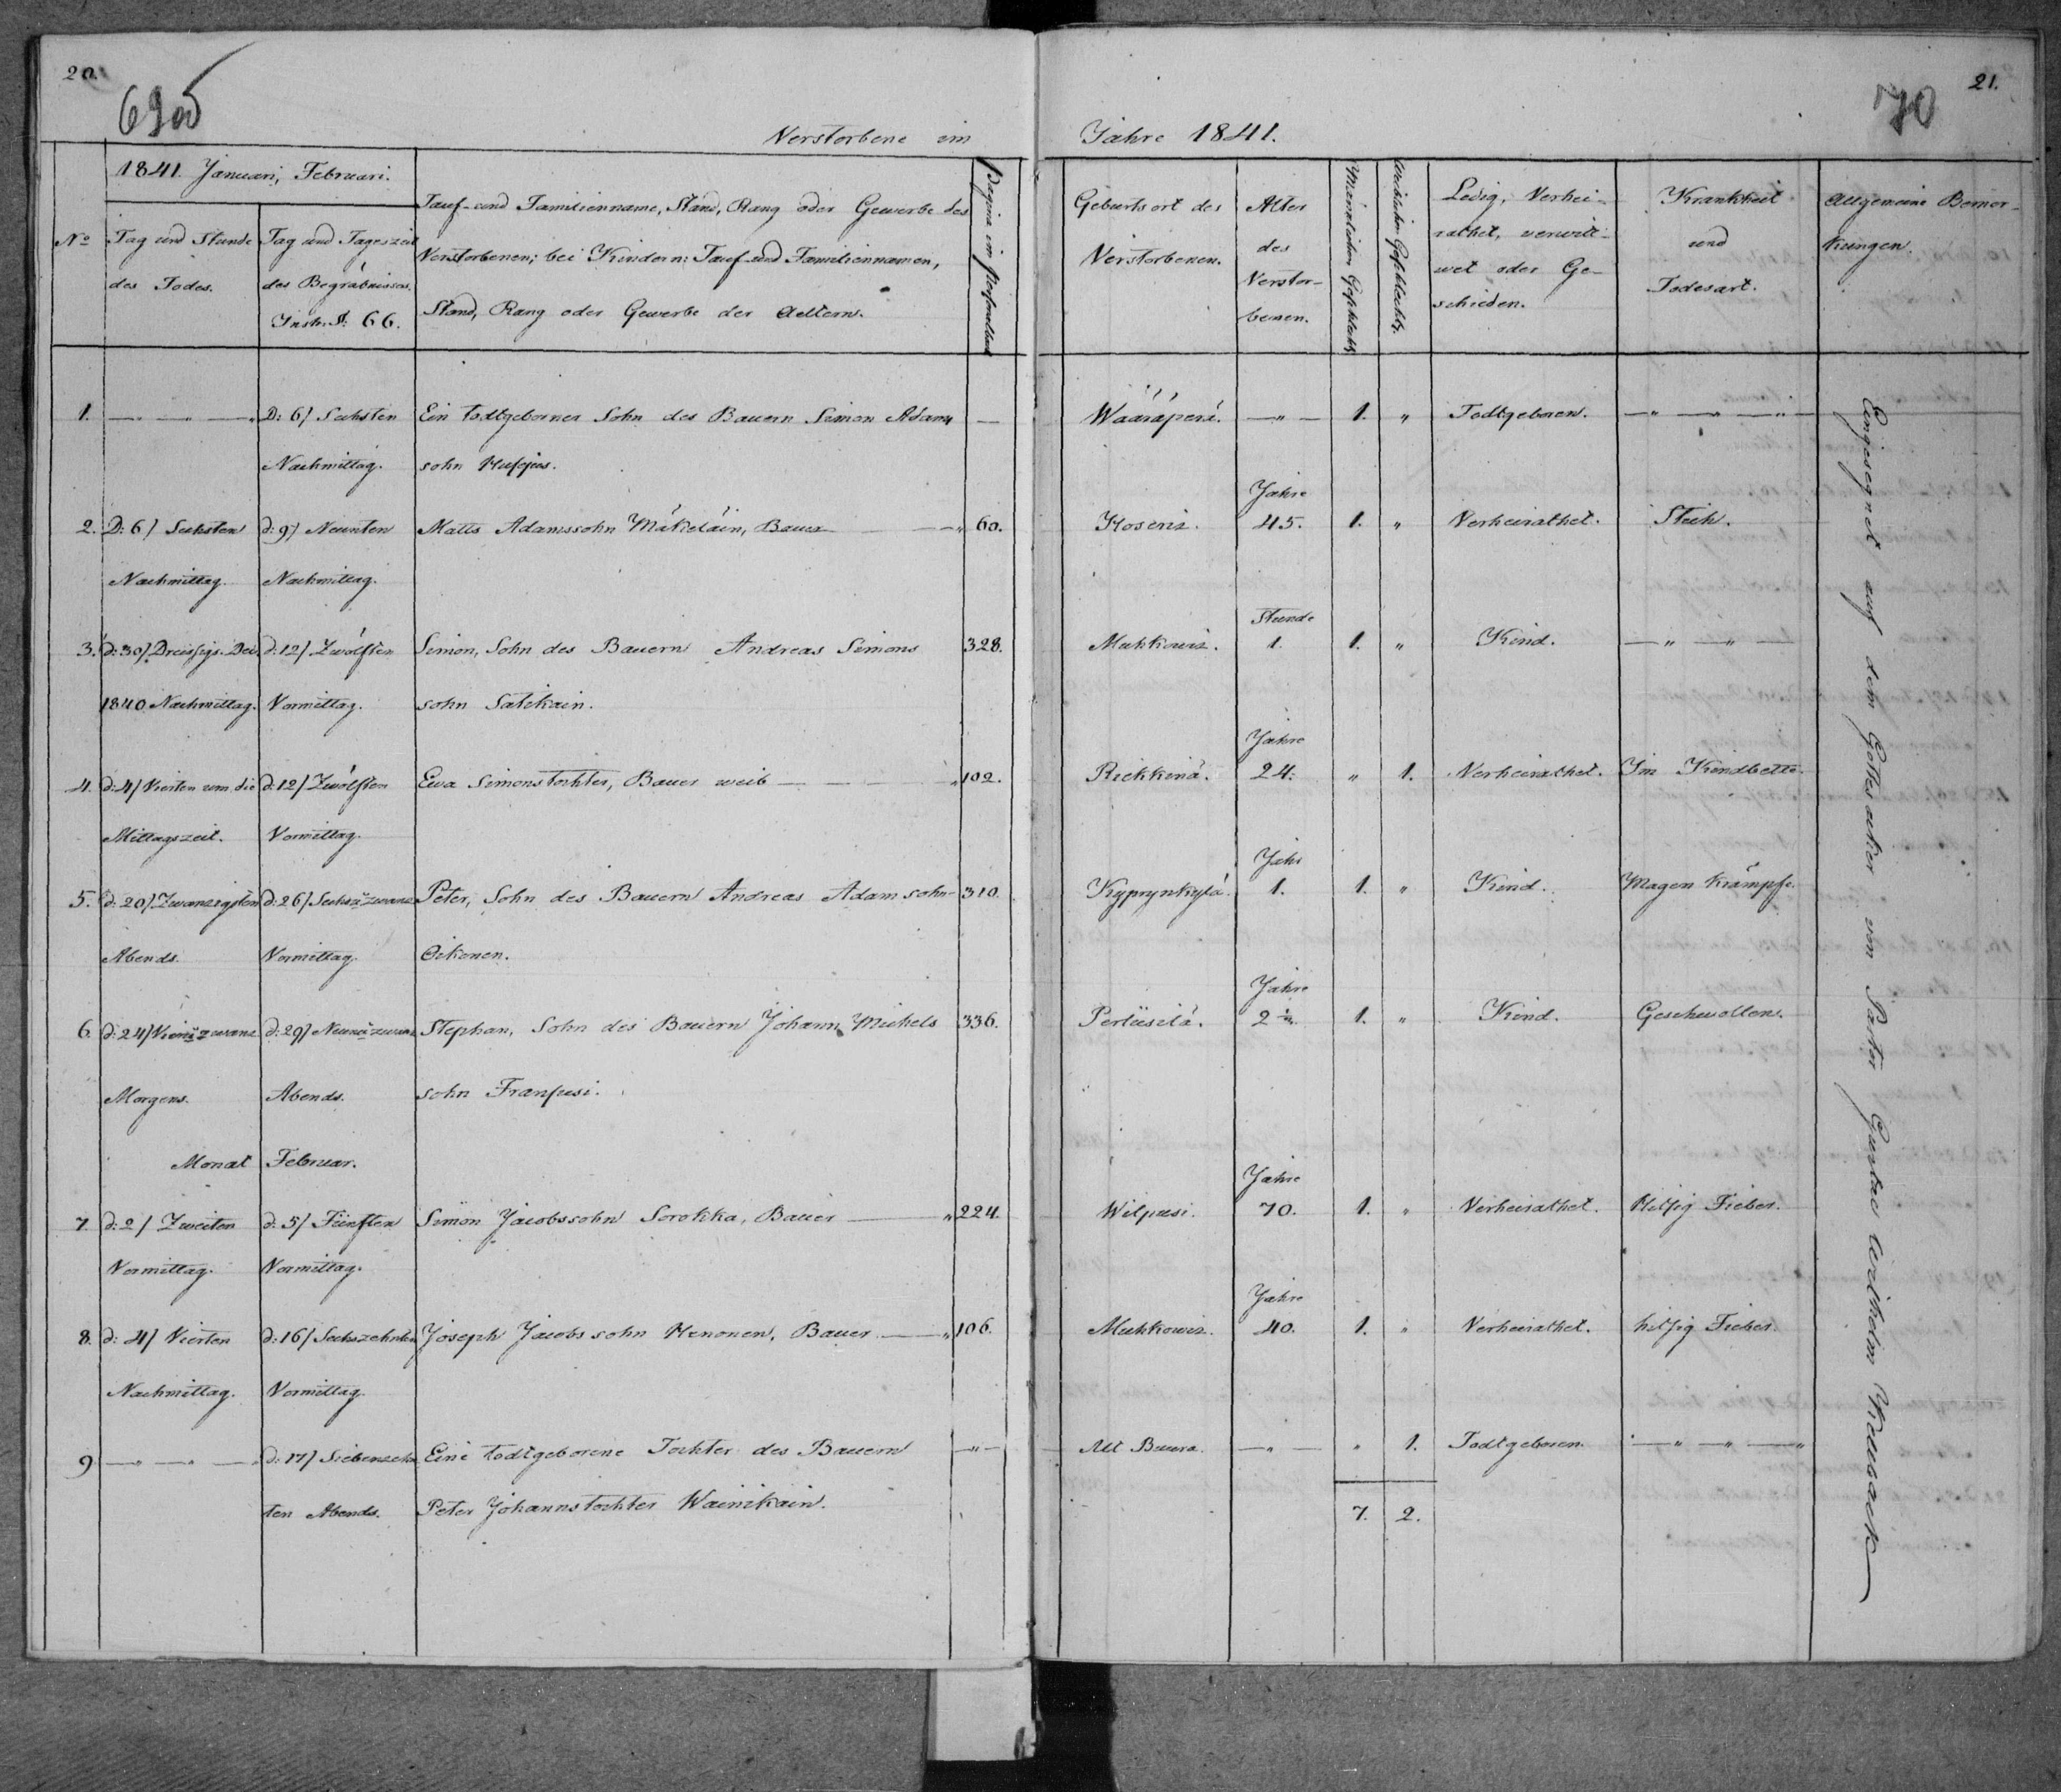 20.
69об
Verstorbene im
Jahre 1841.
70
21.
1841. Januari, Februari.
No
Tag und Stunde
des Todes.
Tag und Tageszeit
des Begräbnisses.
Instr. §: 66.
Tauf- und Familienname, Stand, Rang oder Gewerbe des
Verstorbenen; bei Kindern: Tauf- und Familiennamen,
Stand, Rang oder Gewerbe der Aeltern.
Pagina im
Geburtsort des
Verstorbenen.
Alter
des
Verstor-
benen.
Männlichen Geschlechts
Weiblichen Geschlechts.
Ledig, Verhei-
rathet, verwitt-
wet oder Ge-
schieden.
Krankheit
und
Todesart.
Allgemeine Bemer-
kungen.
1. — " — " — " D: 6/ Sechsten Ein todtgeborner Sohn des Bauern Simon Adams — Wääräperä. — " — 1. " Todtgeboren. — " — " — " —
Nachmittag. sohn
Jahre
2. D: 6/ Sechsten d: 9/ Neunten Matts Adamssohn Mäkeläin, Bauer — " 60. Hoseris. 45. 1. " Verheirathet. Stich.
Nachmittag. Nachmittag.
Stunde
3. d: 30/ Dreissigs. Dec. d: 12/ Zwölften Simon, Sohn des Bauern Andreas Simons 328. Mukkowis. 1. 1. " Kind. — " — " —
1840 Nachmittag. Vormittag. sohn Satikain.
Jahre
4. d: 4/ Vierten um die d: 12/ Zwölften Ewa Simonstochter, Bauer weib — " 102. Rickkinä. 24. " 1. Verheirathet. Im Kindbette.
Mittagszeit. Vormittag.
Jahr
5. d: 20/ Zwanzigsten d: 26/ Sechsūzwanz Peter, Sohn des Bauern Andreas Adamsohn 310. Kyprynkylä. 1. 1. " Kind. Magen krämpfe.
Abends. Vormittag. Oikonen.
Jahre
6. d: 24/ Vierūzwanz d: 29/ Neunūzwanz Stephan, Sohn des Bauern Johann Michels 336. Pertüselä. 2 1. " Kind. Geschwollen.
Morgens. Abends. sohn Franssusi.
Monat Februar.
Jahre
7. d: 2/ Zweiten d: 5/ Fünften Simon Jacobssohn Sorokka, Bauer — " 224. Wilpusi. 70. 1. " Verheirathet. Hitzig Fieber.
Vormittag. Vormittag.
Jahre
8. d: 4/ Vierten d: 16/ Sechszehnten Joseph Jacobssohn Henonen, Bauer — " 106. Mukkowis. 40. 1. " Verheirathet. hitzig Fieber.
Nachmittag. Vormittag.
9 — " — " — d: 17/ Siebenzehn Eine todtgeborene Tochter des Bauern — " — Alt Buura. — " — " 1. Todtgeboren. — " — " — "
ten Abends. Peter Johannstochter Wainikain.
7. 2.
Eingesegnet auf dem Gottesacker vom Pastor Gustav Wilhelm